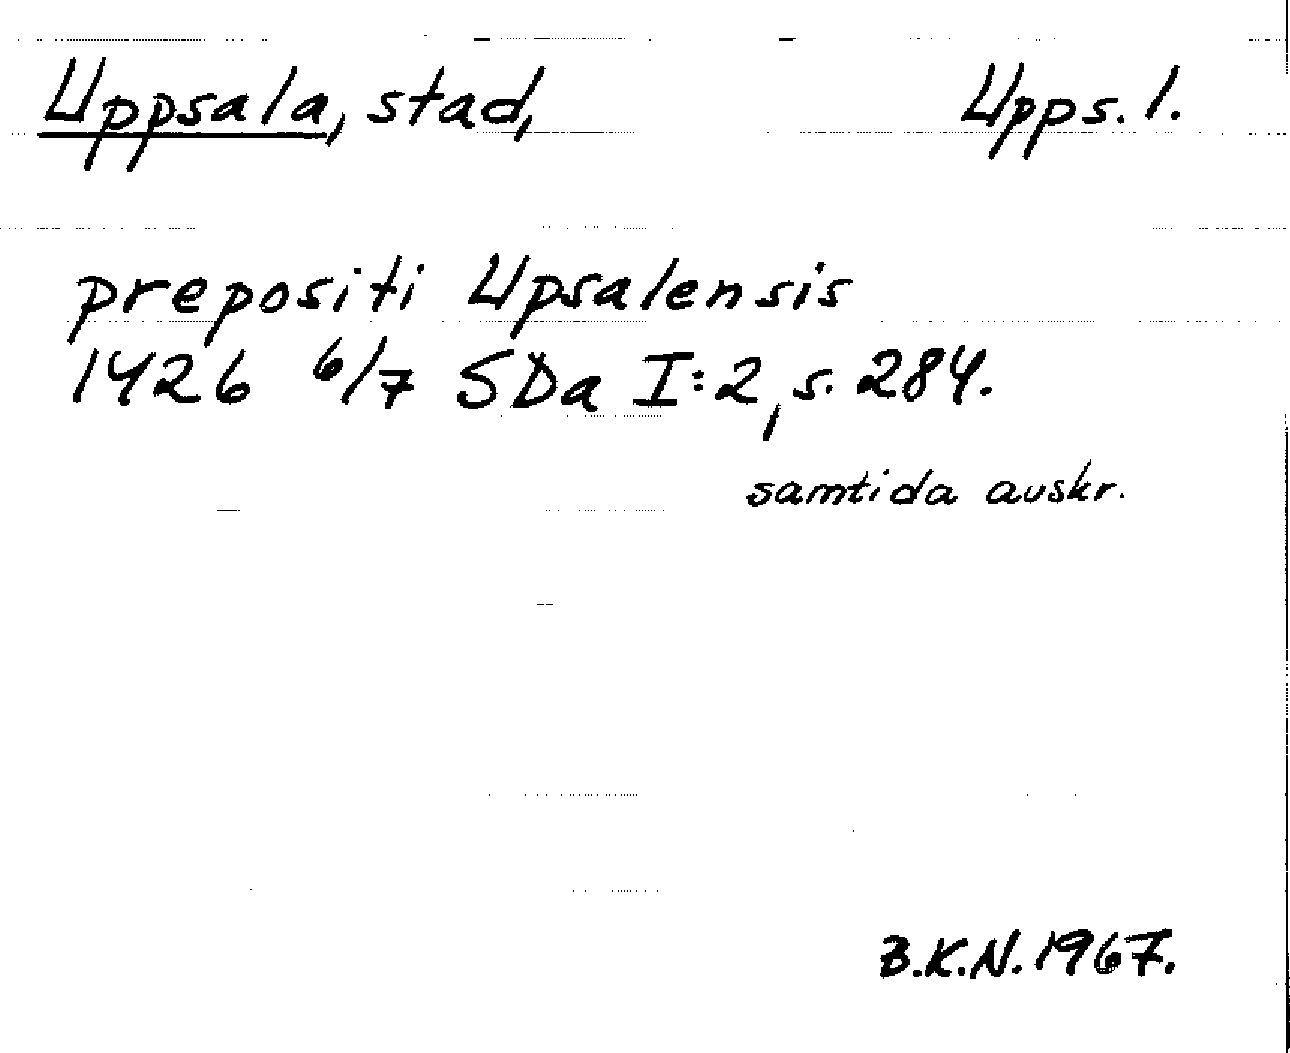 Uppsala, stad, Upps. l.
prepositi Upsalensis
1426 6/7 SDa I:2, s. 284.
samtida avskr.
B.K.N. 1967.